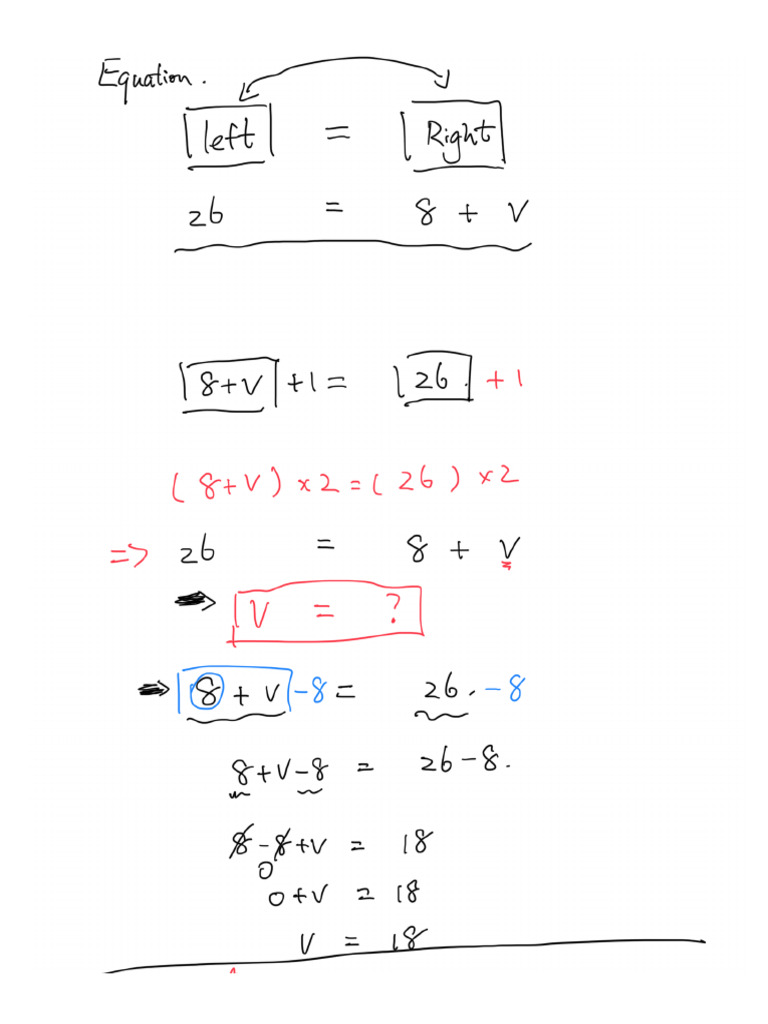 Equation.
left = Right
26 = 8 + V
8+V +1 = 26. +1
(8+V) ×2 = (26) ×2
=> 26 = 8 + V
=> V = ?
=> 8 + V -8 = 26. -8
8+V-8 = 26-8.
8-8+V = 18
0
0+V = 18
V = 18